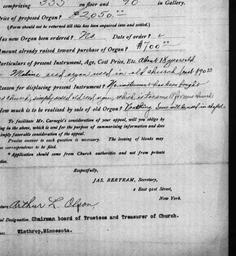 comprising 355 on floor and 90 in Gallery.
Price of proposed Organ? $2,050.00
(Form should not be returned till this has been enquired into and settled.)
Has new Organ been ordered? No. Date of order?
Amount already raised toward purchase of Organ? $700.00
Particulars of present Instrument, Age, Cost Price, Etc. About 18 years old
reed organ used in old church. Cost $90.00
Reason for displacing present Instrument?
How much is to be realized by sale of old Organ? Nothing
To facilitate Mr. Carnegie's consideration of your appeal, will you oblige by
in the above, which is sent for the purpose of summarizing information and does
imply favorable consideration of the appeal.
Precise answer to each question is necessary. The issuing of blanks may
correspondence to be filed.
Application should come from Church authorities and not from private
Respectfully,
JAS. BERTRAM, Secretary,
2 East 91st Street,
New York.
Arthur L. Olson
Designation Chairman board of Trustees and Treasurer of Church.
Winthrop, Minnesota.